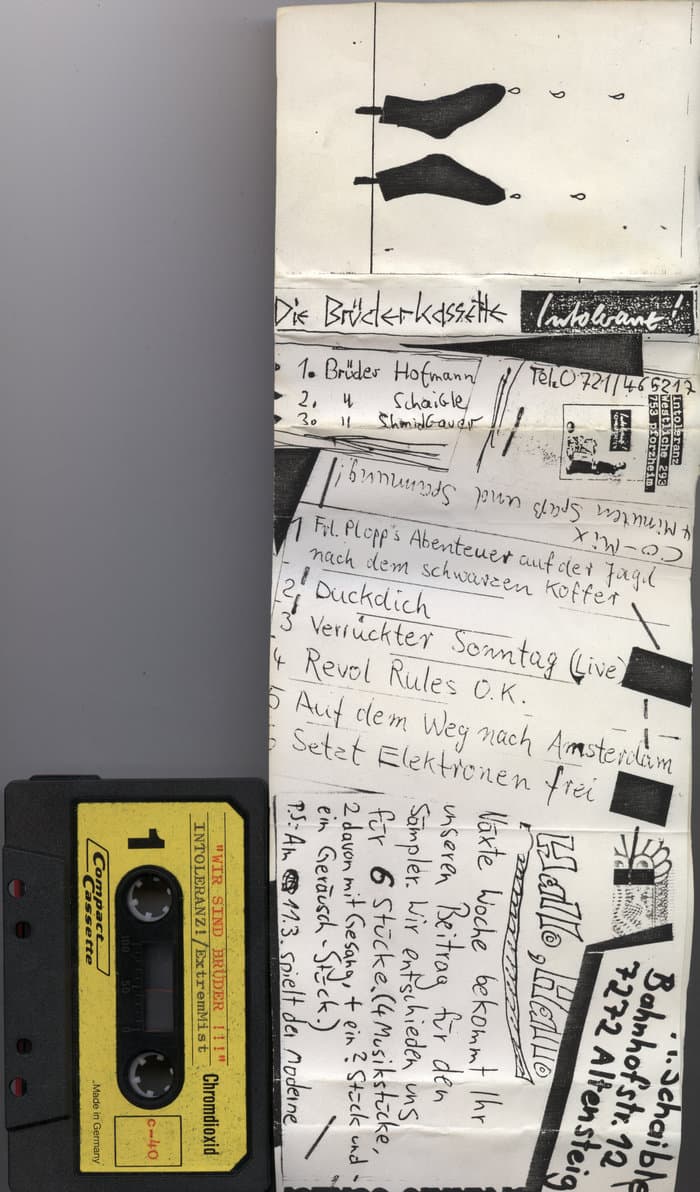 Die Brüderkassette
Intolerant!
1. Brüder Hofmann
2. " Schaible
3. " Shmidgauer
Tel. 0721/465217
Intoleranz
Westliche 293
753 pforzheim
CO-Mix
4 Minuten Spaß und Spannung!
1 Frl. Plopp's Abenteuer auf der Jagd
nach dem schwarzen Koffer
2 Duckdich
3 Verrückter Sonntag (Live)
4 Revol Rules O.K.
5 Auf dem Weg nach Amsterdam
6 Setzt Elektronen frei
Schaible
Bahnhofstr. 12
7272 Altensteig
Hallo, Hallo
Näxte Woche bekommt Ihr
unseren Beitrag für den
Sämpler. Wir entschieden uns
für 6 Stücke. (4 Musikstücke,
2 davon mit Gesang, + ein ? Stück und
ein Geräusch-Stück)
P.S: Am 11.3. spielt der Moderne
"WIR SIND BRÜDER !!!"
INTOLERANZ!/ExtremMist
1
Compact
Cassette
100 50 0
Chromdioxid
C-40
Made in Germany